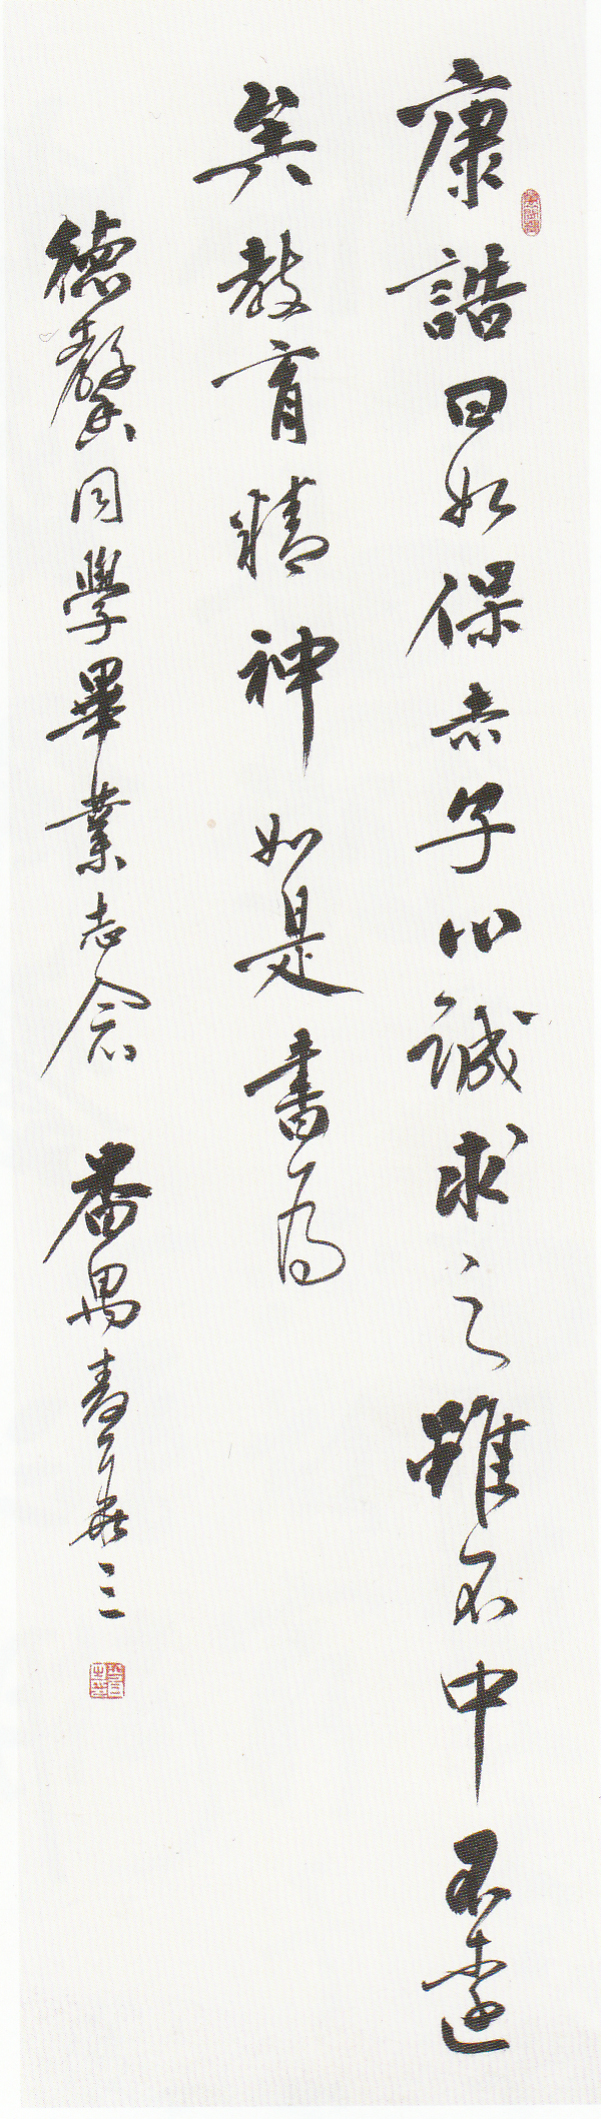 康誥曰如保赤子心誠求之雖不中不遠
矣教育精神如是書為
德馨同學畢業志念 番禺麥華三